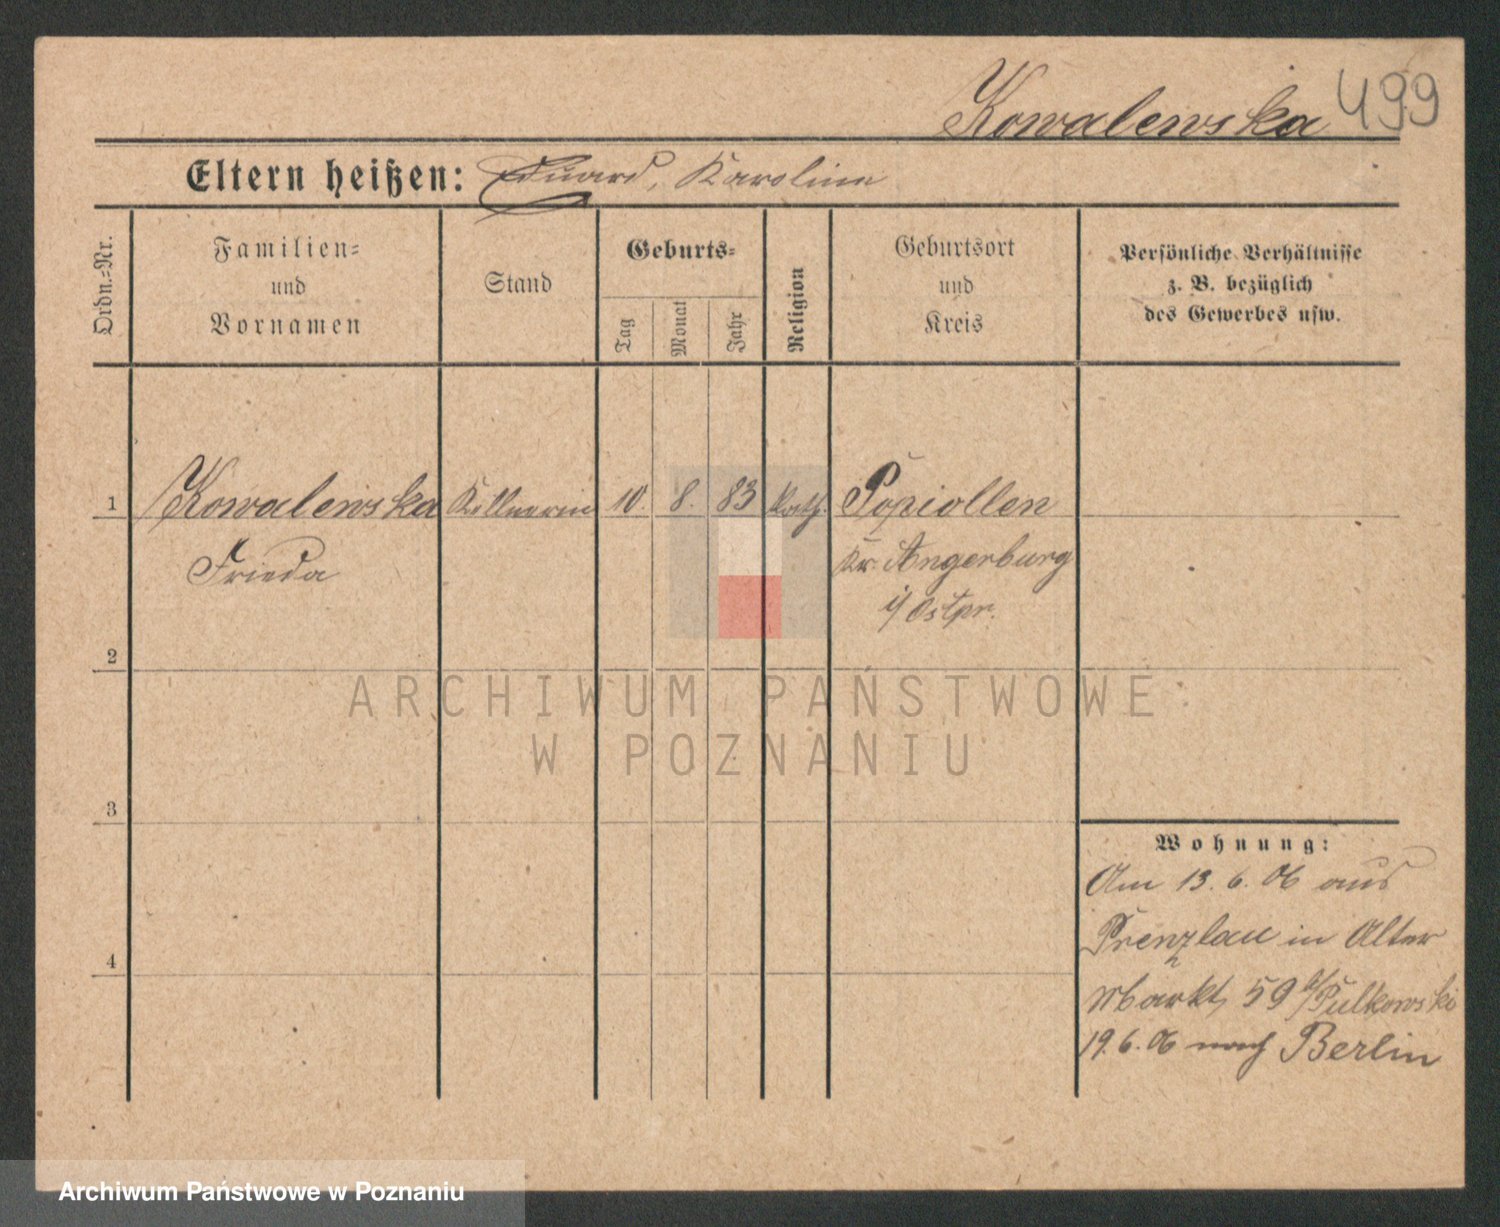 Kowalewska 499
Eltern heißen: Eduard, Karoline
Ordn.-Nr.
Familien-
und
Vornamen
Stand
Geburts-
Tag
Monat
Jahr
Religion
Geburtsort
und
Kreis
Persönliche Verhältnisse
z. B. bezüglich
des Gewerbes usw.
1 Kowalewska Kellnerin 10. 8. 83 kath. Popiollen
Frieda Kr. Angerburg
i/ Ostpr.
2
ARCHIWUM PAŃSTWOWE
W POZNANIU
3
Wohnung:
Am 13. 6. 06 aus
Prenzlau in Alter
4
Markt, 59 b/Pulkowski
19. 6. 06 nach Berlin
Archiwum Państwowe w Poznaniu